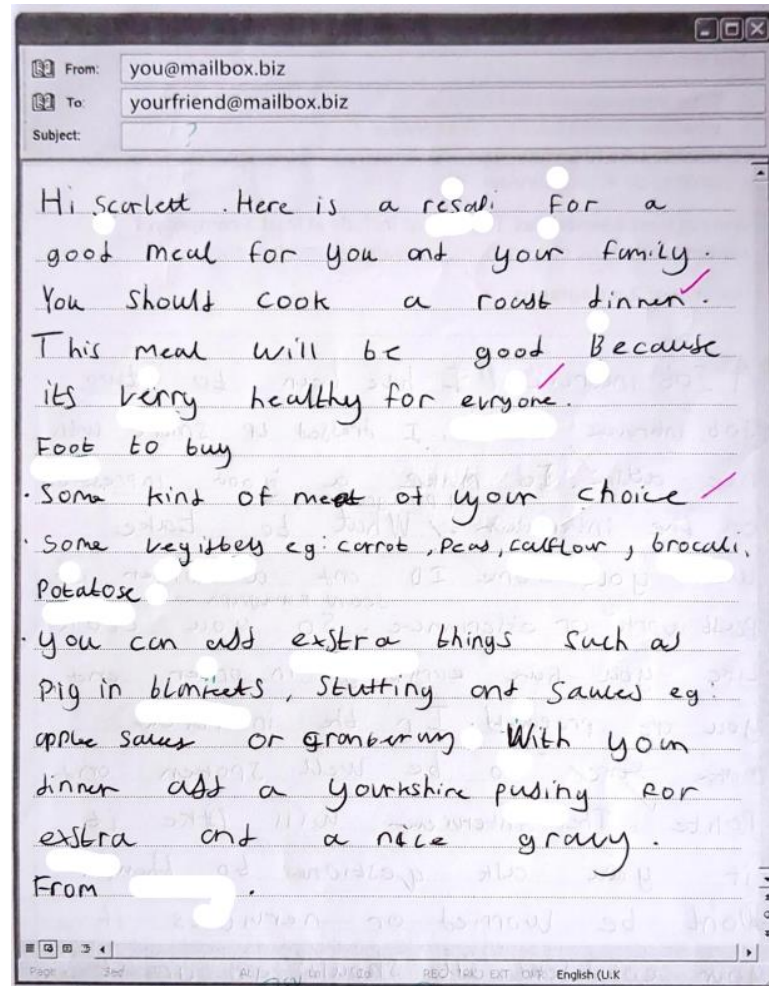 From: you@mailbox.biz
To: yourfriend@mailbox.biz
Subject: ?
Hi Scarlett . Here is a resali For a
good meal for you and your family.
You should cook a roast dinner.
This meal will be good Because
its verry healthy for evryone.
Foot to buy
· Some kind of meat of your choice
· Some vegistbels eg: carrot, peas, calflour, brocali,
Potatose
· you can add exstra things such as
pig in blankets, Stutting and Sauces eg:
apple sauces or granberry With your
dinner add a yourkshire pusing For
exstra and a nice gravy.
From .
English (U.K